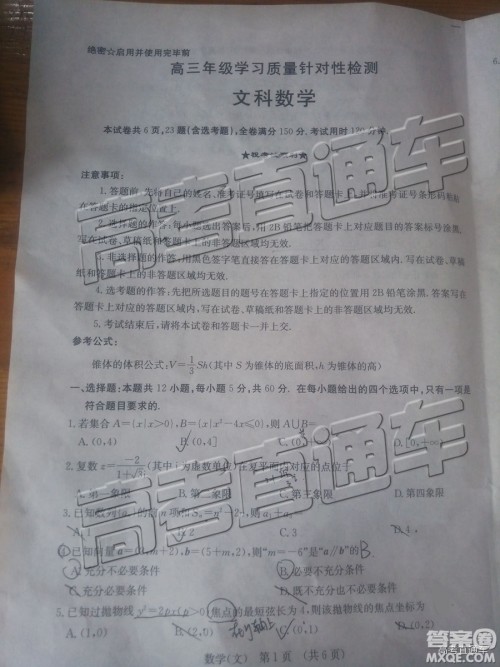 绝密☆启用并使用完毕前
6.
高三年级学习质量针对性检测
文科数学
本试卷共6页,23题(含选考题),全卷满分150分.考试用时120分钟.
注意事项:
1.答题前,先将自己的姓名、准考证号填写在试
在答题卡的指定位置上.
2.选择题的作答:每小题选出答案后,用2B铅笔把答题卡上对应题目的答案标号涂黑.
写在试卷、草稿纸和答题卡上的非答题区域均无效.
3.非选择题的作答:用黑色签字笔直接答在答题卡上对应的答题区域内.写在试卷、草稿
纸和答题卡上的非答题区域均无效.
4.选考题的作答:先把所选题目的题号在答题卡上指定的位置用2B铅笔涂黑.答案写在
答题卡上对应的答题区域内,写在试卷、草稿纸和答题卡上的非答题区域均无效.
5.考试结束后,请将本试卷和答题卡一并上交.
参考公式:
锥体的体积公式:V=1/3Sh(其中S为锥体的底面积,h为锥体的高)
一、选择题:本题共12小题,每小题5分,共60分.在每小题给出的四个选项中,只有一项是
符合题目要求的.
1.若集合A={x|x>0},B={x|x²-4x≤0},则A∪B=
A.(0,4) B.(0,4] C.(0, D.[0,+∞)
2.复数z=-2/1+√3i(其中i为虚数单位)在复平面内对应的点位于
A.第一象限 B.第二象限 C.第三象限 D.第四象限
3.已知 的前n项和Sₙ=n²-2,则a₁+
B.2 C.3 D.4
4.已知向量 b=(5+m,2),则“m=-6”是“a∥b”的 B.
A.充分不必要条件 B.必要不充分条件
C.充分必要条件 D.既不充分也不必要条件
5.已知过抛物线y²=2px(p>0)焦点的最短弦长为4,则该抛物线的焦点坐标为
A.(1,0) B.(2,0) C.(0,1) D.(0,2)
数学(文) 第1页 (共6页)
高考直通车
高考直通车
答案圈
MXQE.COM